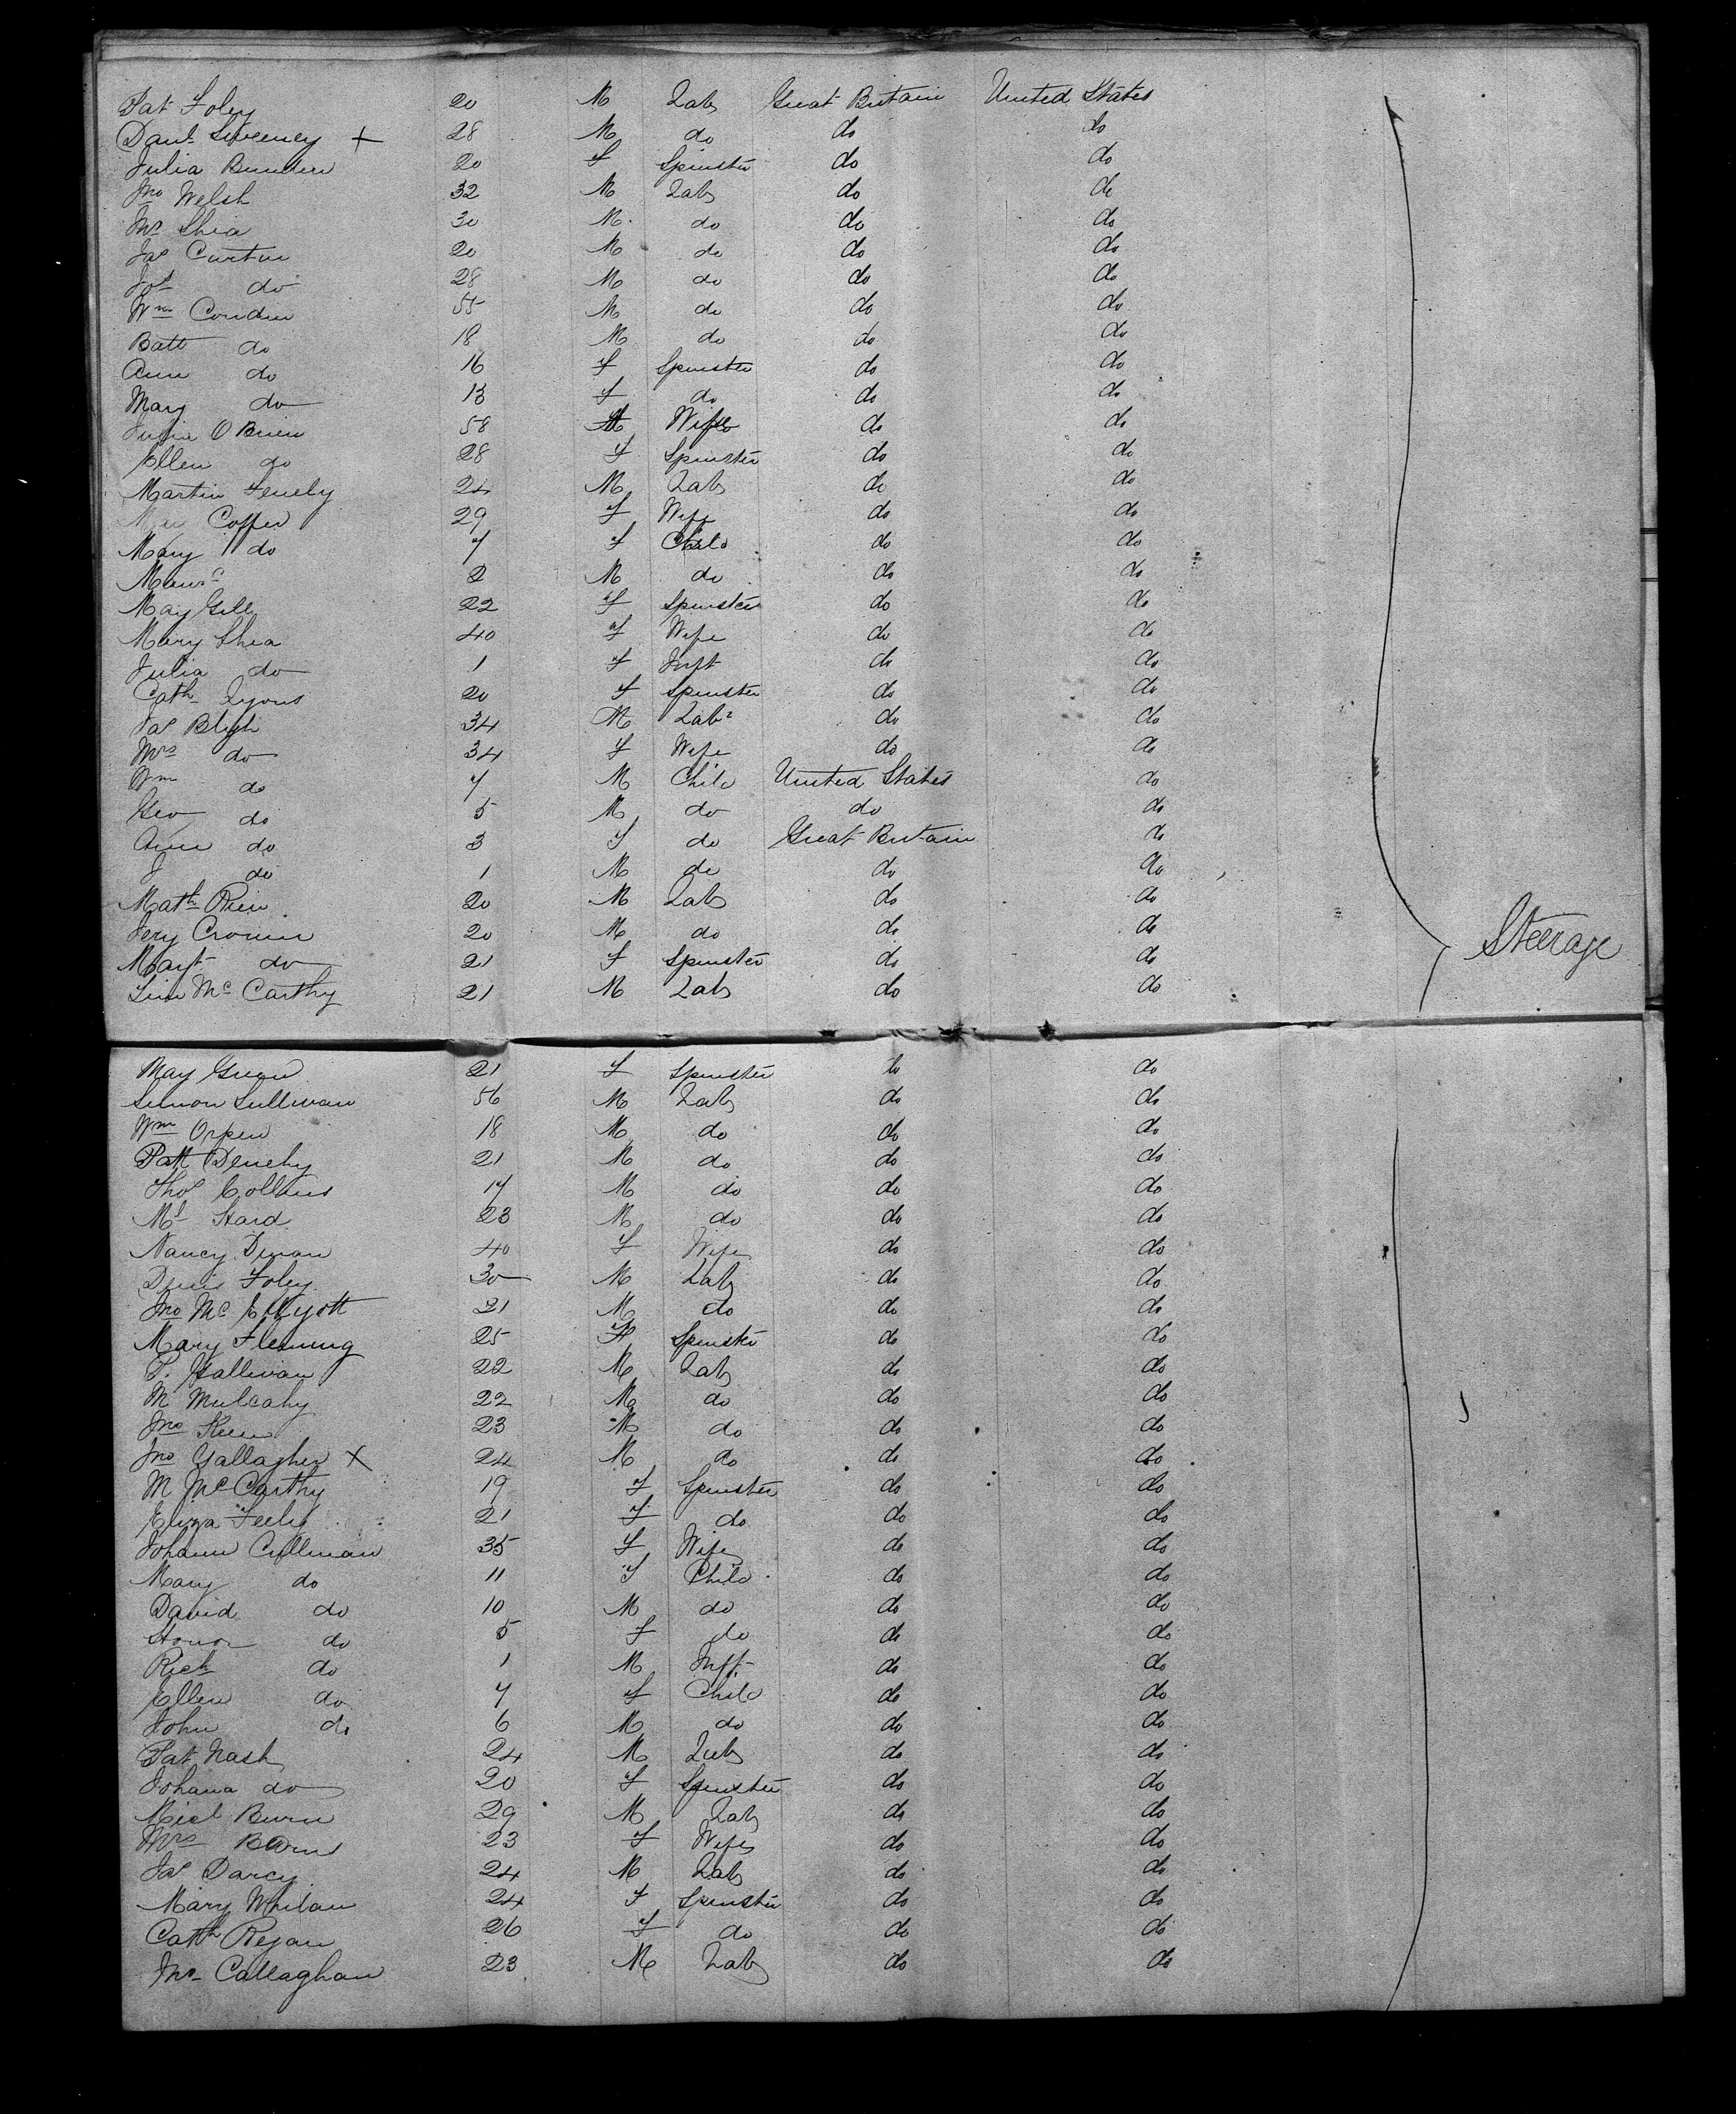 Pat Foley 20 M Labr Great Britain United States
Danl Sweeney + 28 M do do do
Julia 20 F Spinster do do
Jno Welsh 32 M Labr do do
Shea 30 M do do do
Jas Curtin 20 M do do do
do 28 M do do do
Wm Condon 55 M do do do
Batt do 18 M do do do
Ann do 16 F Spinster do do
Mary do 13 F do do do
O Brien 58 Wife do do
Ellen do 28 F Spinster do do
Martin 24 M Labr do do
29 F Wife do do
Mary do 7 F Child do do
2 M do do do
May Gill 22 F Spinster do do
Mary Shea 40 F Wife do do
Julia do 1 F Inft do do
Cath Lyons 20 F Spinster do do
Jas Bligh 34 M Labr do do
Mrs do 34 F Wife do do
Wm do 7 M Child United States do
Geo do 5 M do do do
Ann do 3 F do Great Britain do
J do 1 M do do do
Math 20 M Labr do do
Jery Cronin 20 M do do do
Steerage
Margt do 21 F Spinster do do
Tim McCarthy 21 M Labr do do
May 21 F Spinster do do
Simon Sullivan 56 M Labr do do
Wm Orpen 18 M do do do
Patt Denehy 21 M do do do
Thos Collins 17 M do do do
Ml 23 M do do do
Nancy 40 F Wife do do
Denis Foley 30 M Labr do do
Jno Mc Ellyott 21 M do do do
Mary Fleming 25 F Spinster do do
Hallivan 22 M Labr do do
M Mulcahy 22 M do do do
Jno 23 M do do do
Jno Gallagher X 24 M do do do
M McCarthy 19 F Spinster do do
Eliza 21 F do do do
Johann Cullinan 35 F Wife do do
Mary do 11 F Child do do
David do 10 M do do do
Honor do 5 F do do do
Rich do 1 M Inft do do
Ellen do 7 F Child do do
John do 6 M do do do
Pat Nash 24 M Labr do do
Johana do 20 F Spinster do do
Burn 29 M Labr do do
Mrs 23 F Wife do do
Jas Darcy 24 M Labr do do
Mary Whelan 24 F Spinster do do
Cath Regan 26 F do do do
Jno Callaghan 23 M Labr do do